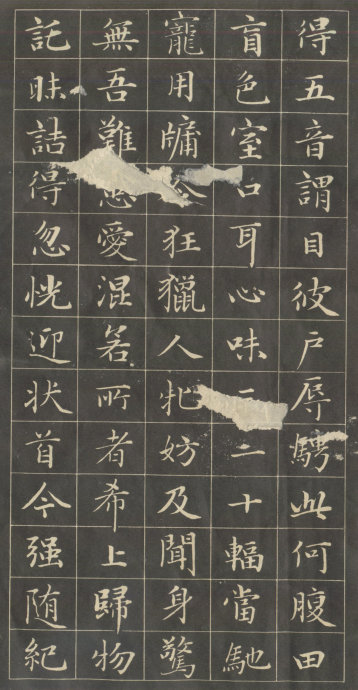 得五音謂目彼户辱騁此何腹田
盲色室口耳心味二十輻當馳
寵用牖令狂獵人牝妨及聞身驚
無吾難患愛混若所者希上歸物
託昧詰得忽恍迎状首今强随紀